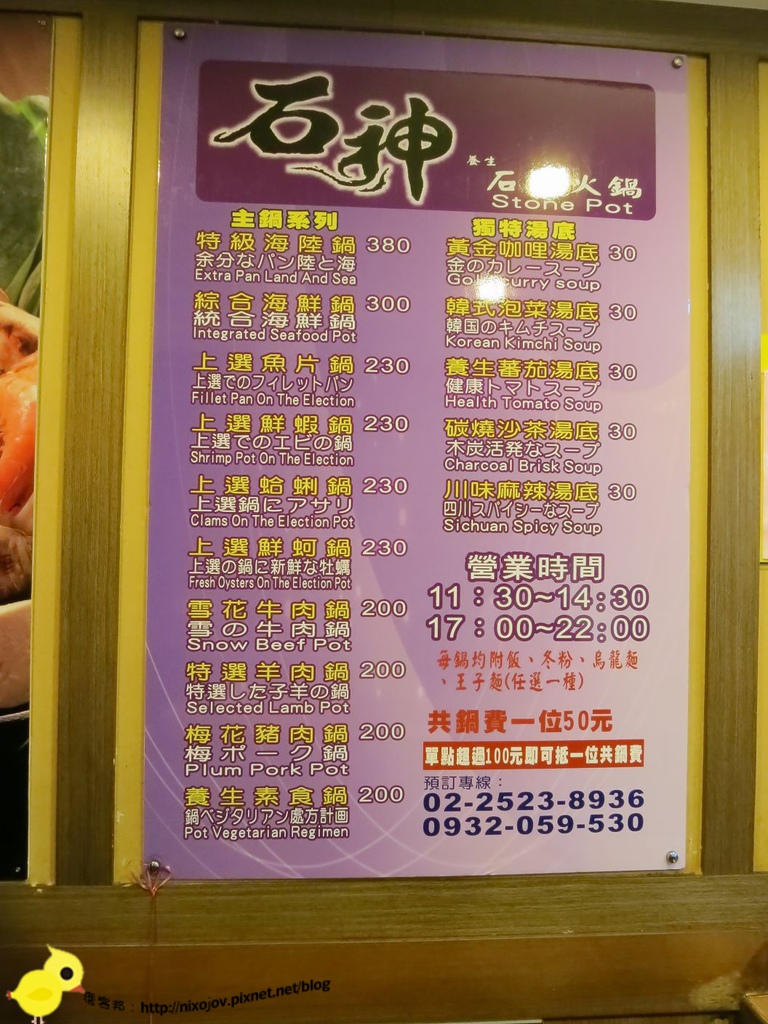 石神
養生
石 火鍋
Stone Pot
主鍋系列
特級海陸鍋 380
余分なパン陸と海
Extra Pan Land And Sea
綜合海鮮鍋 300
統合海鮮鍋
Integrated Seafood Pot
上選魚片鍋 230
上選でのフィレットパン
Fillet Pan On The Election
上選鮮蝦鍋 230
上選でのエビの鍋
Shrimp Pot On The Election
上選蛤蜊鍋 230
上選鍋にアサリ
Clams On The Election Pot
上選鮮蚵鍋 230
上選の鍋に新鮮な牡蠣
Fresh Oysters On The Election Pot
雪花牛肉鍋 200
雪の牛肉鍋
Snow Beef Pot
特選羊肉鍋 200
特選した子羊の鍋
Selected Lamb Pot
梅花豬肉鍋 200
梅ポーク鍋
Plum Pork Pot
養生素食鍋 200
鍋ベジタリアン處方計画
Pot Vegetarian Regimen
獨特湯底
黃金咖哩湯底 30
金のカレースープ
Gold curry soup
韓式泡菜湯底 30
韓国のキムチスープ
Korean Kimchi Soup
養生蕃茄湯底 30
健康トマトスープ
Health Tomato Soup
碳燒沙茶湯底 30
木炭活発なスープ
Charcoal Brisk Soup
川味麻辣湯底 30
四川スパイシーなスープ
Sichuan Spicy Soup
營業時間
11：30~14：30
17：00~22：00
每鍋均附飯、冬粉、烏龍麵
、王子麵(任選一種)
共鍋費一位50元
單點超過100元即可抵一位共鍋費
預訂專線：
02-2523-8936
0932-059-530
痞客邦：http://nixojov.pixnet.net/blog